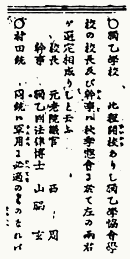 ◯獨乙学校　此程開校ありし獨乙学協會學
校の校長及び幹事ハ秋季惣會に於て左の両君
が選定相成りしと云ふ
校長　元老院議官　西　周
幹事　獨乙国法律博士　山脇　玄
◯村田銃　同銃ハ軍用に必適のものなれバ